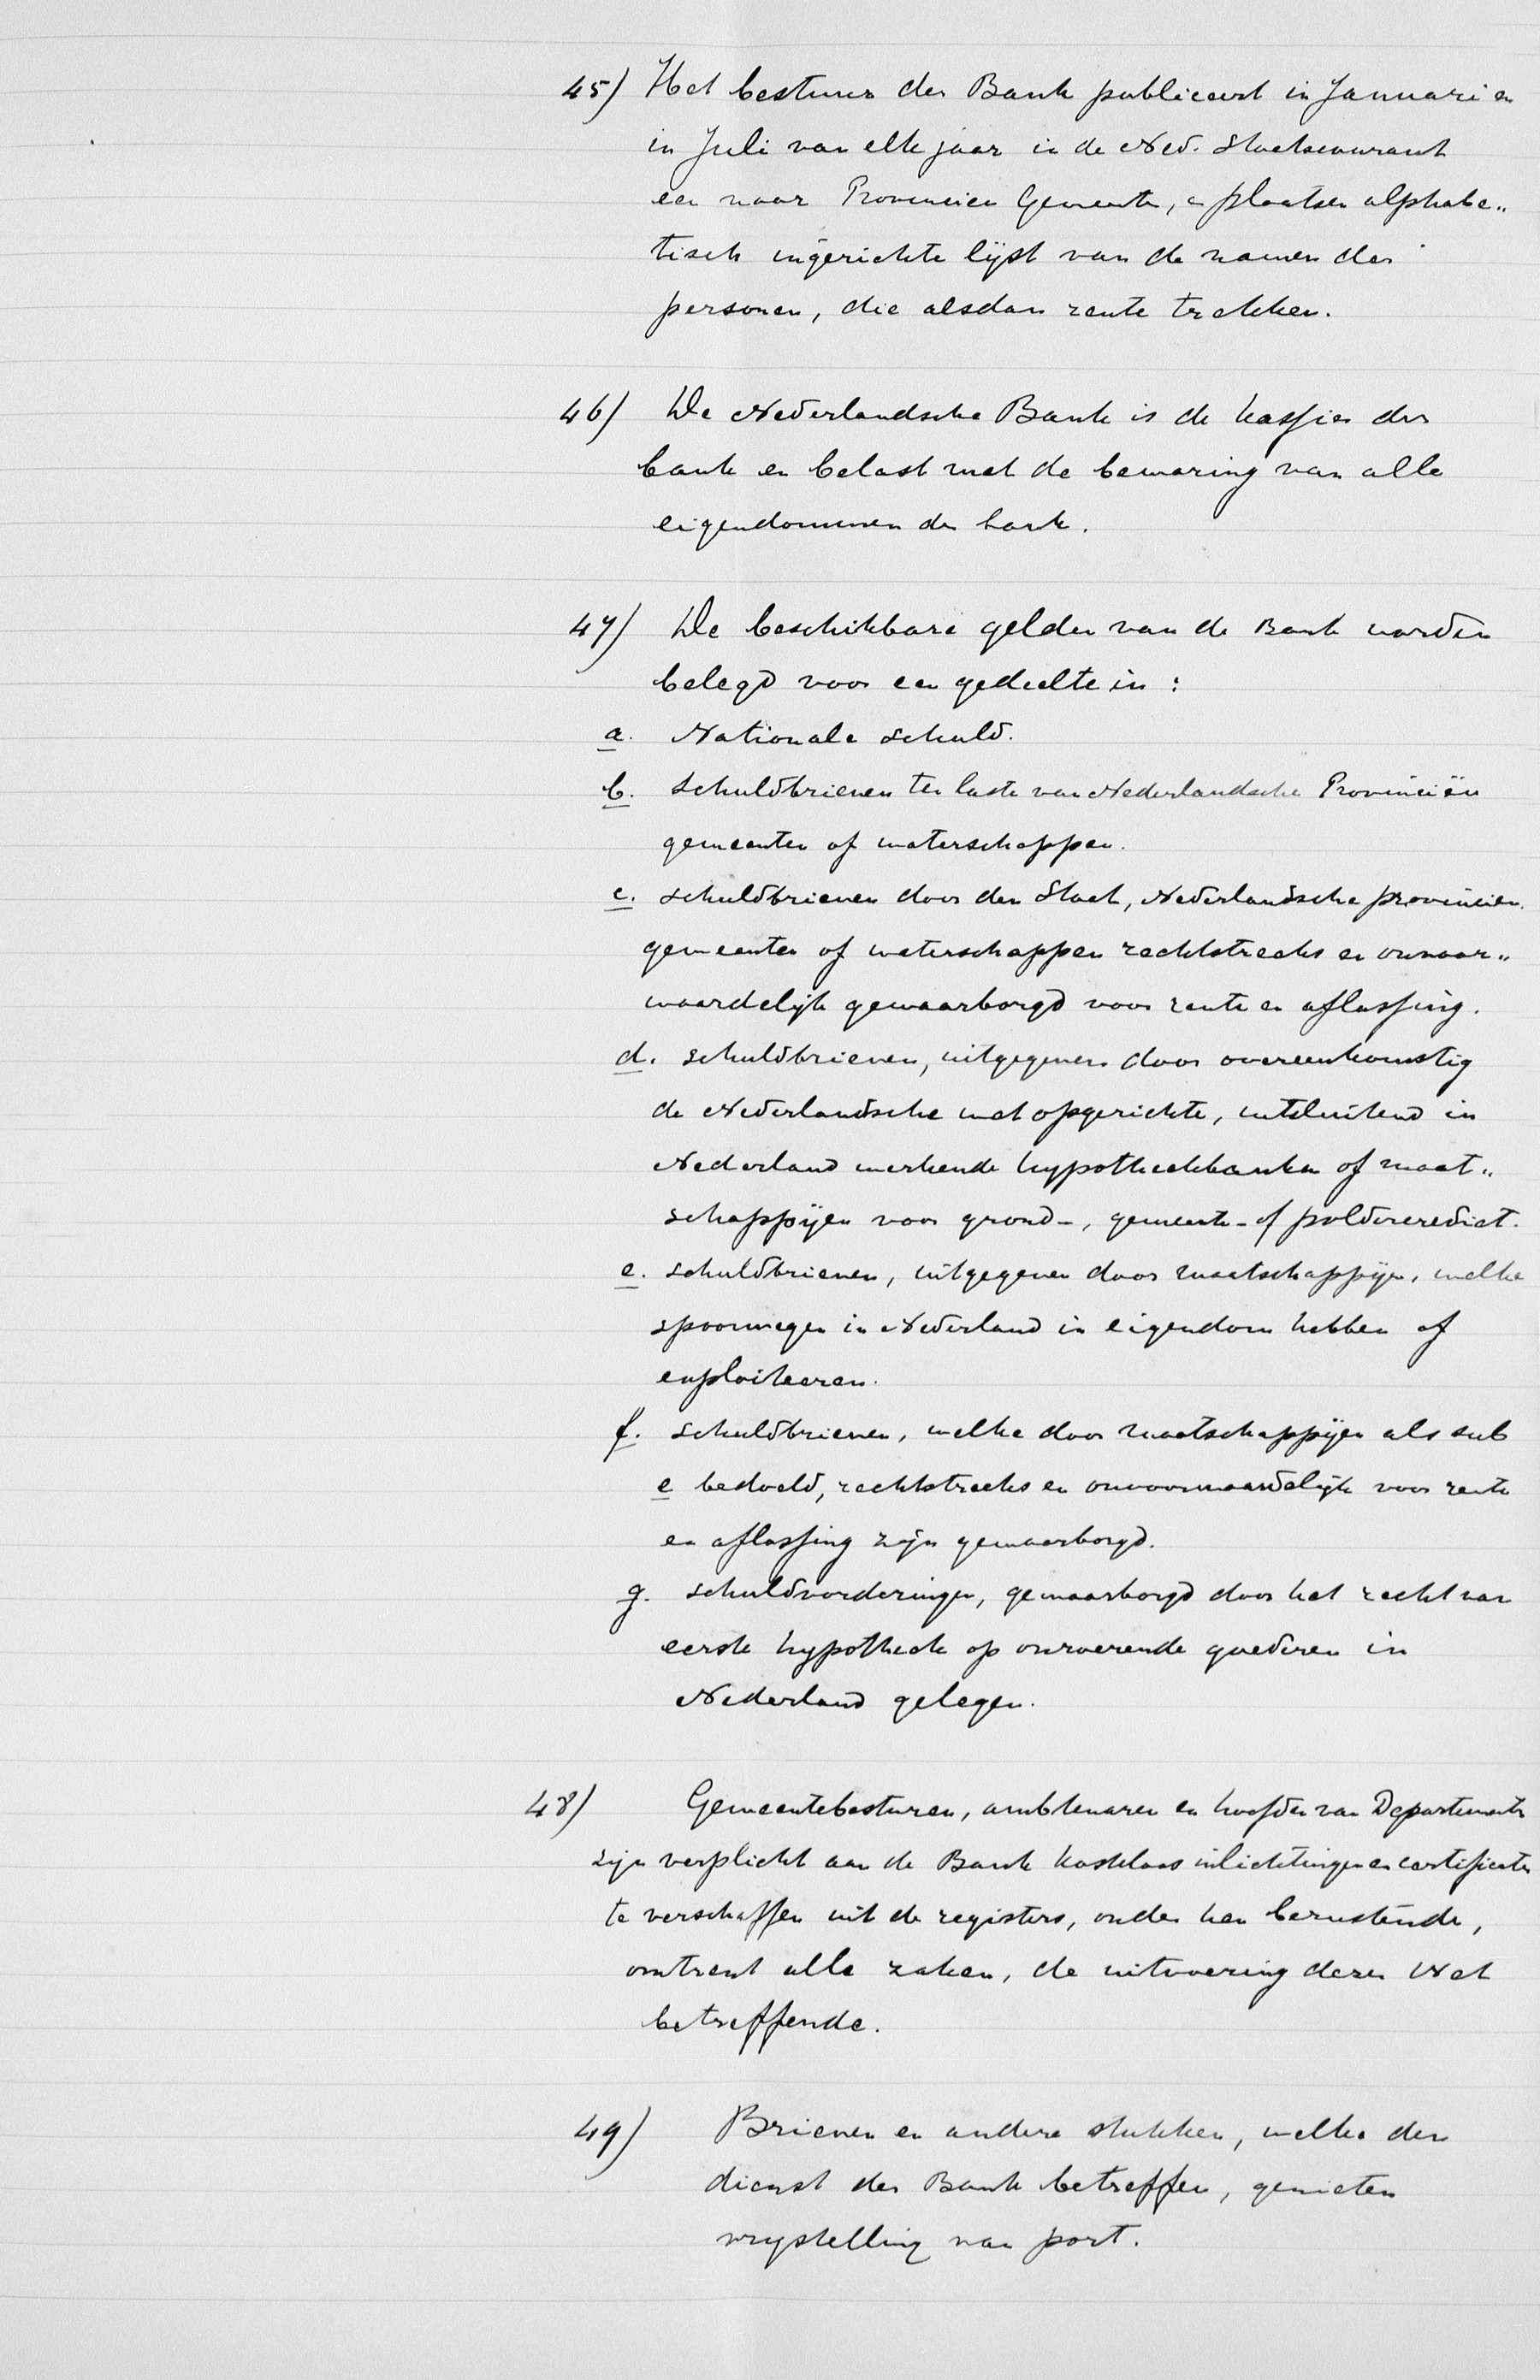 45) Het bestuur der Bank publiceert in Januari en
in Juli van elk jaar in de Ned. Staatscourant
een naar Provincien Gemeenten, en plaatsen alphabe„
tisch ingerichte lijst van de namen der
personen, die alsdan rente trekken.
46) De Nederlandsche Bank is de kassier der
bank en belast met de bewaring van alle
eigendommen der bank.
47) De beschikbare gelden van de Bank worden
belegd voor een gedeelte in :
a. Nationale schuld.
b. schuldbrieven ten laste van Nederlandsche Provinciën
gemeenten of waterschappen.
c. schuldbrieven door den Staat, Nederlandsche provincien.
gemeenten of waterschappen rechtstreeks en onvoor„
waardelijk gewaarborgd voor rente en aflossing.
d. schuldbrieven, uitgegeven door overeenkomstig
de Nederlandsche wet opgerichte, uitsluitend in
Nederland werkende hypotheekbanken of maat„
schappijen voor grond-, gemeente- of poldercrediet.
e. schuldbrieven, uitgegeven door maatschappijen, welke
spoorwegen in Nederland in eigendom hebben of
exploiteeren.
f. schuldbrieven, welke door maatschappijen als sub
e bedoeld, rechtstreeks en onvoorwaardelijk voor rente
en aflossing zijn gewaarborgd.
g. schuldvorderingen, gewaarborgd door het recht van
eerste hypotheek op onroerende goederen in
Nederland gelegen.
48) Gemeentebesturen, ambtenaren en hoofden van Departementen
zijn verplicht aan de Bank kosteloos inlichtingen en certificaten
te verschaffen uit de registers, onder hen berustende,
omtrent alle zaken, de uitvoering dezer Wet
betreffende.
49) Brieven en andere stukken, welke den
dienst der Bank betreffen, genieten
vrijstelling van port.